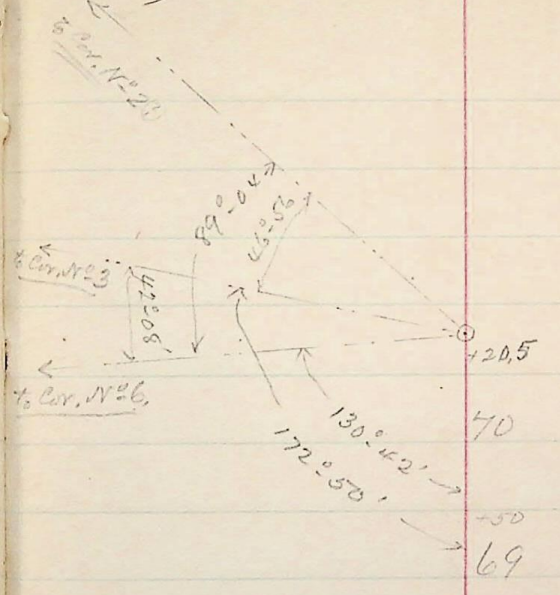 to Cor. Nº 2
89º-04'
46º-56'
to Cor. Nº 3
42º-08'
to Cor. Nº 6.
+20.5
130º-42'
70
172º-50'
+50
69